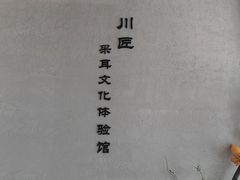 川匠
采耳文化体验馆